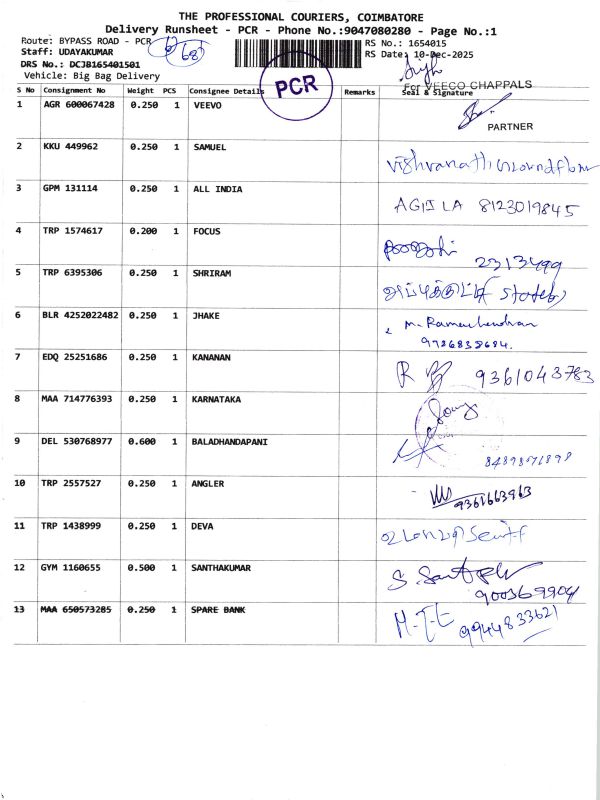 THE PROFESSIONAL COURIERS, COIMBATORE
Delivery Runsheet - PCR - Phone No.:9047080280 - Page No.:1
Route: BYPASS ROAD - PCR
RS No.: 1654015
Staff: UDAYAKUMAR
687
RS Date: 10-Dec-2025
DRS No.: DCJB165401501
PCR
For VEECO CHAPPALS
Vehicle: Big Bag Delivery
S No Consignment No Weight PCS Consignee Details Remarks Seal & Signature
1 AGR 600067428 0.250 1 VEEVO
PARTNER
2 KKU 449962 0.250 1 SAMUEL
3 GPM 131114 0.250 1 ALL INDIA 8123019845
4 TRP 1574617 0.200 1 FOCUS 2313499
5 TRP 6395306 0.250 1 SHRIRAM
6 BLR 4252022482 0.250 1 JHAKE M. Ramachandran
7 EDQ 25251686 0.250 1 KANANAN R 9361043783
8 MAA 714776393 0.250 1 KARNATAKA
9 DEL 530768977 0.600 1 BALADHANDAPANI
10 TRP 2557527 0.250 1 ANGLER 9361663963
11 TRP 1438999 0.250 1 DEVA
12 GYM 1160655 0.500 1 SANTHAKUMAR
900369904
13 MAA 650573285 0.250 1 SPARE BANK 9944833621